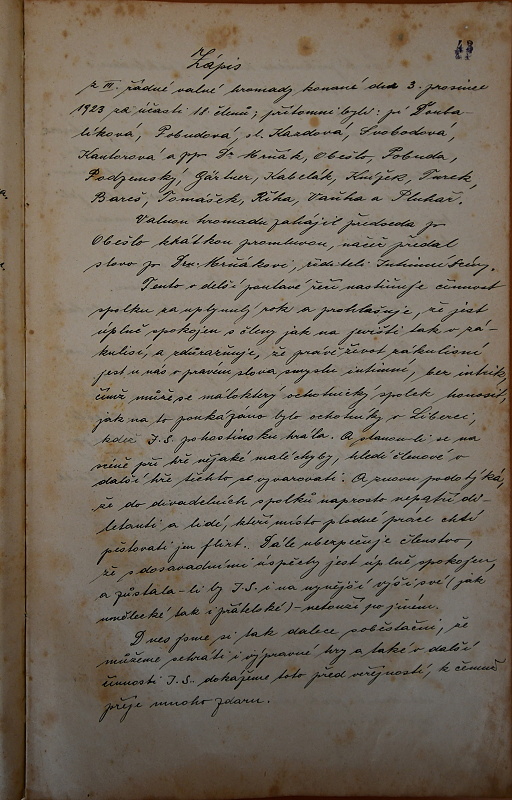 43
Zápis
z III. řádné valné hromady konané dne 3. prosince
1923 za účasti 18 členů; přítomni byli: pí Douba-
líková, Pobudová, sl. Kazdová, Svobodová,
Kantorová a pp. Dr. Mrňák, Obešlo, Pobuda,
Podzemský, Gärtner, Kabelák, Knížek, Turek,
Bareš, Tomášek, Říha, Vaňha a Pluhař.
Valnou hromadu zahájil předseda p.
Obešlo krátkou promluvou, načež předal
slovo p. Dru Mrňákovi, řediteli Intimní Scény.
Tento v delší poutavé řeči nastiňuje činnost
spolku za uplynulý rok a prohlašuje, že jest
úplně spokojen s členy jak na jevišti tak v zá-
kulisí, a zdůrazňuje, že právě život zákulisní
jest u nás v pravém slova smyslu intimní, bez intrik,
čímž může se málokterý ochotnický spolek honositi,
jak na to poukázáno bylo ochotníky v Liberci,
kde I.S. pohostinsku hrála. A stanou-li se na
scéně při hře nějaké malé chyby, hledí členové v
další hře těchto se vyvarovati. A znovu podotýká,
že do divadelních spolků naprosto nepatří di-
letanti a lidé, kteří místo plodné práce chtí
pěstovati jen flirt. Dále ubezpečuje členstvo,
že s dosavadními úspěchy jest úplně spokojen,
a zůstala-li by I.S. i na nynější výši své (jak
umělecké tak i přátelské) – netouží po jiném.
Dnes jsme si tak dalece soběstační, že
můžeme sehráti i výpravné hry a také v další
činnosti I.S. dokážeme toto před veřejností, k čemuž
přeje mnoho zdaru.